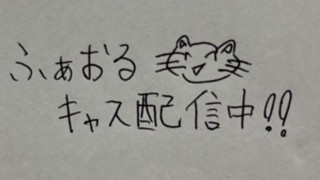 ふぁおる
キャス配信中!!